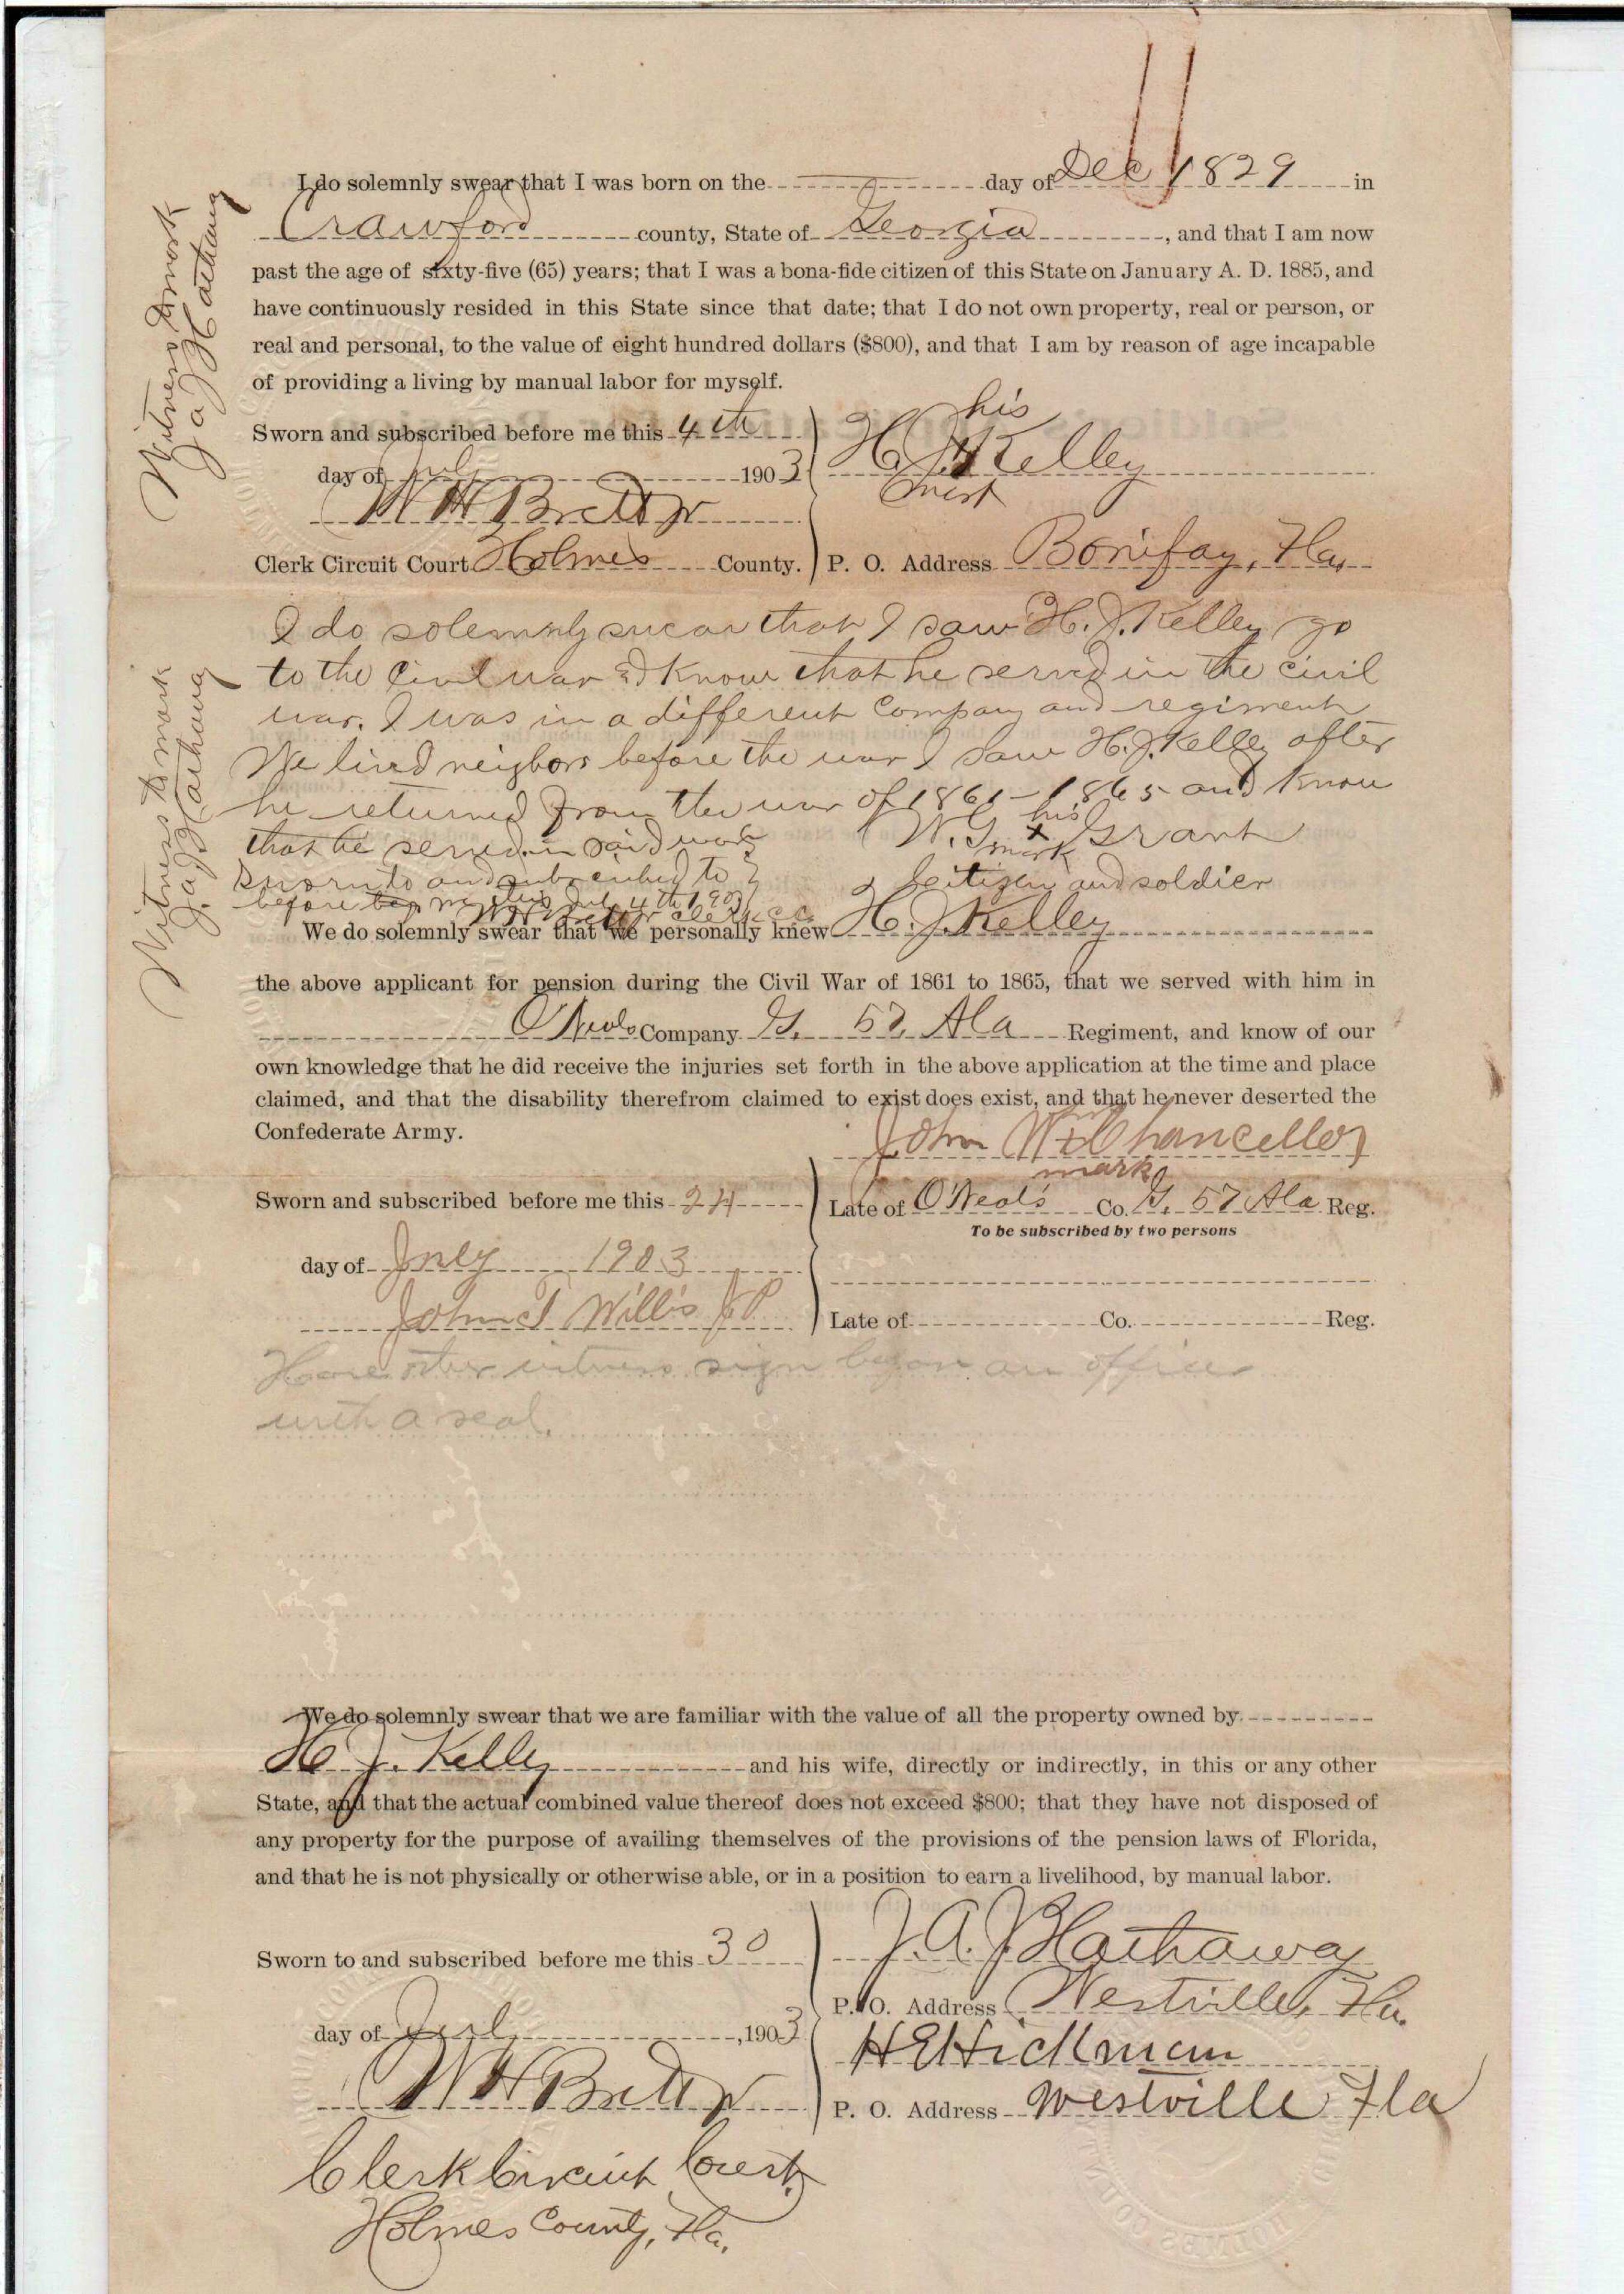 I do solemnly swear that I was born on the day of Dec 1829 in
Crawford county, State of Georgia, and that I am now
past the age of sixty-five (65) years; that I was a bona-fide citizen of this State on January A. D. 1885, and
have continuously resided in this State since that date; that I do not own property, real or person, or
real and personal, to the value of eight hundred dollars ($800), and that I am by reason of age incapable
of providing a living by manual labor for myself.
Witness to mark
J. A. J. Hathaway
Sworn and subscribed before me this 4th
day of July 1903
W H Brett Jr
Clerk Circuit Court Holmes County.
his
H. J. X Kelley
mark
P. O. Address Bonifay, Fla,
I do solemnly swear that I saw H. J. Kelley go
to the Civil war and know that he served in the civil
war. I was in a different Company and regiment
We lived neighbors before the war I saw H. J. Kelley after
he returned from the war of 1861-1865 and know
that he served in said war
his
W. G. x Grant
mark
citizen and soldier
Sworn to and subscribed to
before me this July 4th 1903
W H Brett Jr clerk c.c.
Witness to mark
J. A. J. Hathaway
We do solemnly swear that we personally knew H. J. Kelley
the above applicant for pension during the Civil War of 1861 to 1865, that we served with him in
O'Neals Company G. 57 Ala Regiment, and know of our
own knowledge that he did receive the injuries set forth in the above application at the time and place
claimed, and that the disability therefrom claimed to exist does exist, and that he never deserted the
Confederate Army.
John W x Chancellor
mark
Sworn and subscribed before me this 24
day of July 1903
John T Willis J P
Late of O'Neal's Co. G. 57 Ala Reg.
To be subscribed by two persons
Late of Co. Reg.
Have other witness sign before an officer
with a seal.
We do solemnly swear that we are familiar with the value of all the property owned by
H J. Kelley and his wife, directly or indirectly, in this or any other
State, and that the actual combined value thereof does not exceed $800; that they have not disposed of
any property for the purpose of availing themselves of the provisions of the pension laws of Florida,
and that he is not physically or otherwise able, or in a position to earn a livelihood, by manual labor.
Sworn to and subscribed before me this 30
day of July, 1903
W H Brett Jr
Clerk Circuit Court
Holmes County, Fla.
J. A. J. Hathaway
P. O. Address Westville, Fla.
H E Hickman
P. O. Address Westville Fla